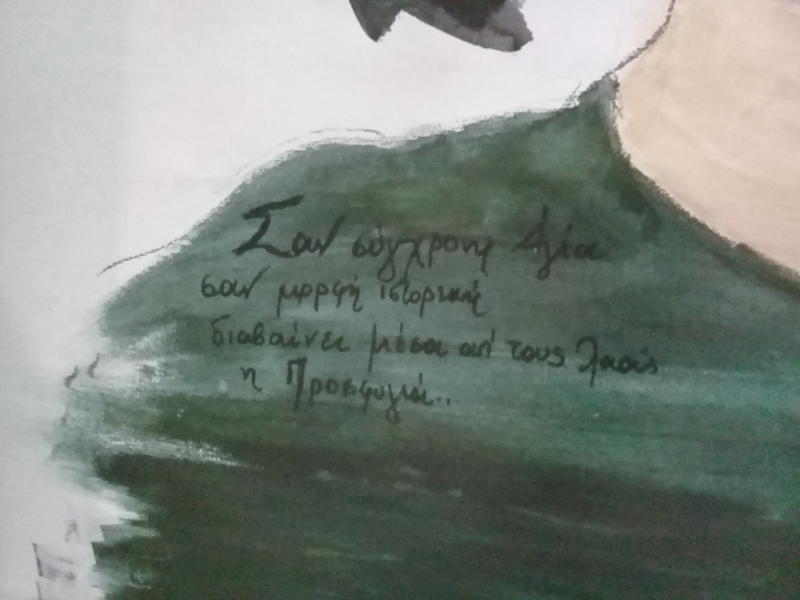 Σαν σύγχρονη Αγία
σαν μορφή ιστορική
διαβαίνει μέσα απ' τους λαούς
η Προσφυγιά..